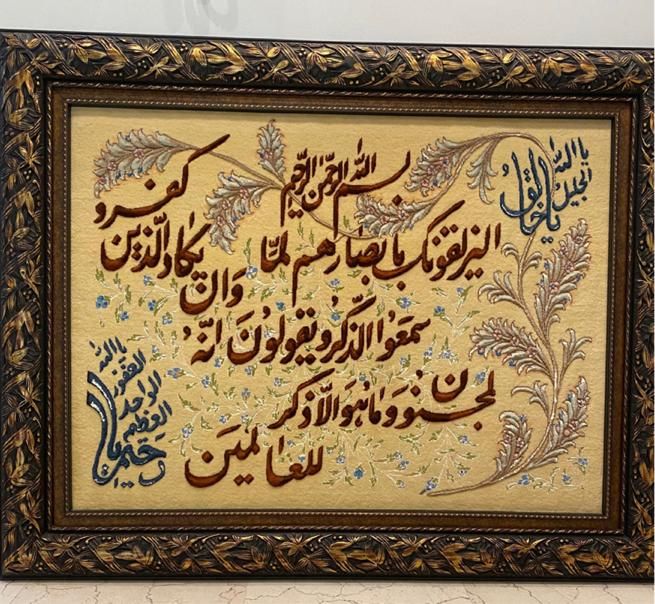 بسم الله الرحمن الرحیم
وان یکاد الذین کفرو
الیزلقونک بابصارهم لمّا
سمعوا الذّکر ویقولون انّه
لمجنون وماهو الّا ذکر
للعالمین
یا الله
الجلیل
یا خالق
یا الله
الغفور
الواحد
العظیم